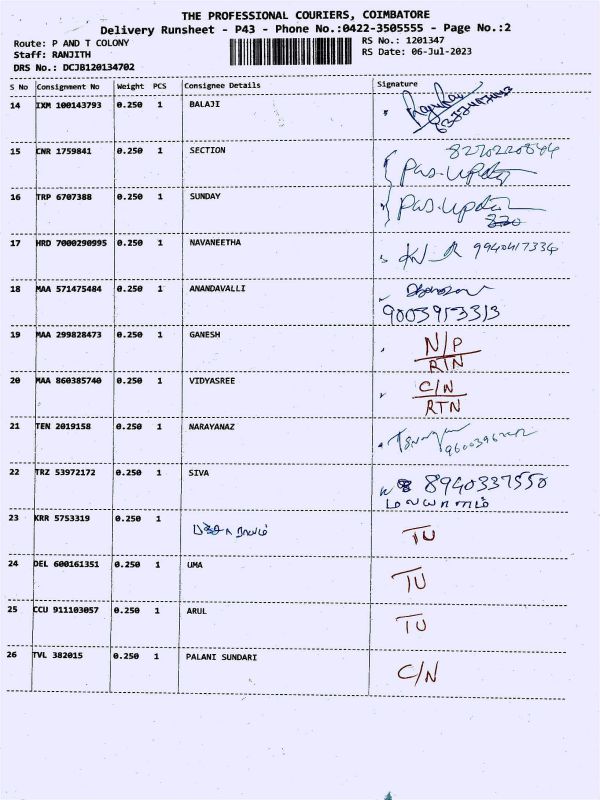 THE PROFESSIONAL COURIERS, COIMBATORE
Delivery Runsheet - P43 - Phone No.:0422-3505555 - Page No.:2
Route: P AND T COLONY
Staff: RANJITH
DRS No.: DCJB120134702
RS No.: 1201347
RS Date: 06-Jul-2023
S No Consignment No Weight PCS Consignee Details Signature
14 IXM 100143793 0.250 1 BALAJI
15 CNR 1759841 0.250 1 SECTION
Pas.Update
16 TRP 6707388 0.250 1 SUNDAY Pas.Update
17 HRD 7000290995 0.250 1 NAVANEETHA 9940417334
18 MAA 571475484 0.250 1 ANANDAVALLI
9003913313
19 MAA 299828473 0.250 1 GANESH N/P
RTN
20 MAA 860385740 0.250 1 VIDYASREE C/N
RTN
21 TEN 2019158 0.250 1 NARAYANAZ
22 TRZ 53972172 0.250 1 SIVA 8940337550
23 KRR 5753319 0.250 1 TU
24 DEL 600161351 0.250 1 UMA TU
25 CCU 911103057 0.250 1 ARUL TU
26 TVL 382015 0.250 1 PALANI SUNDARI C/N